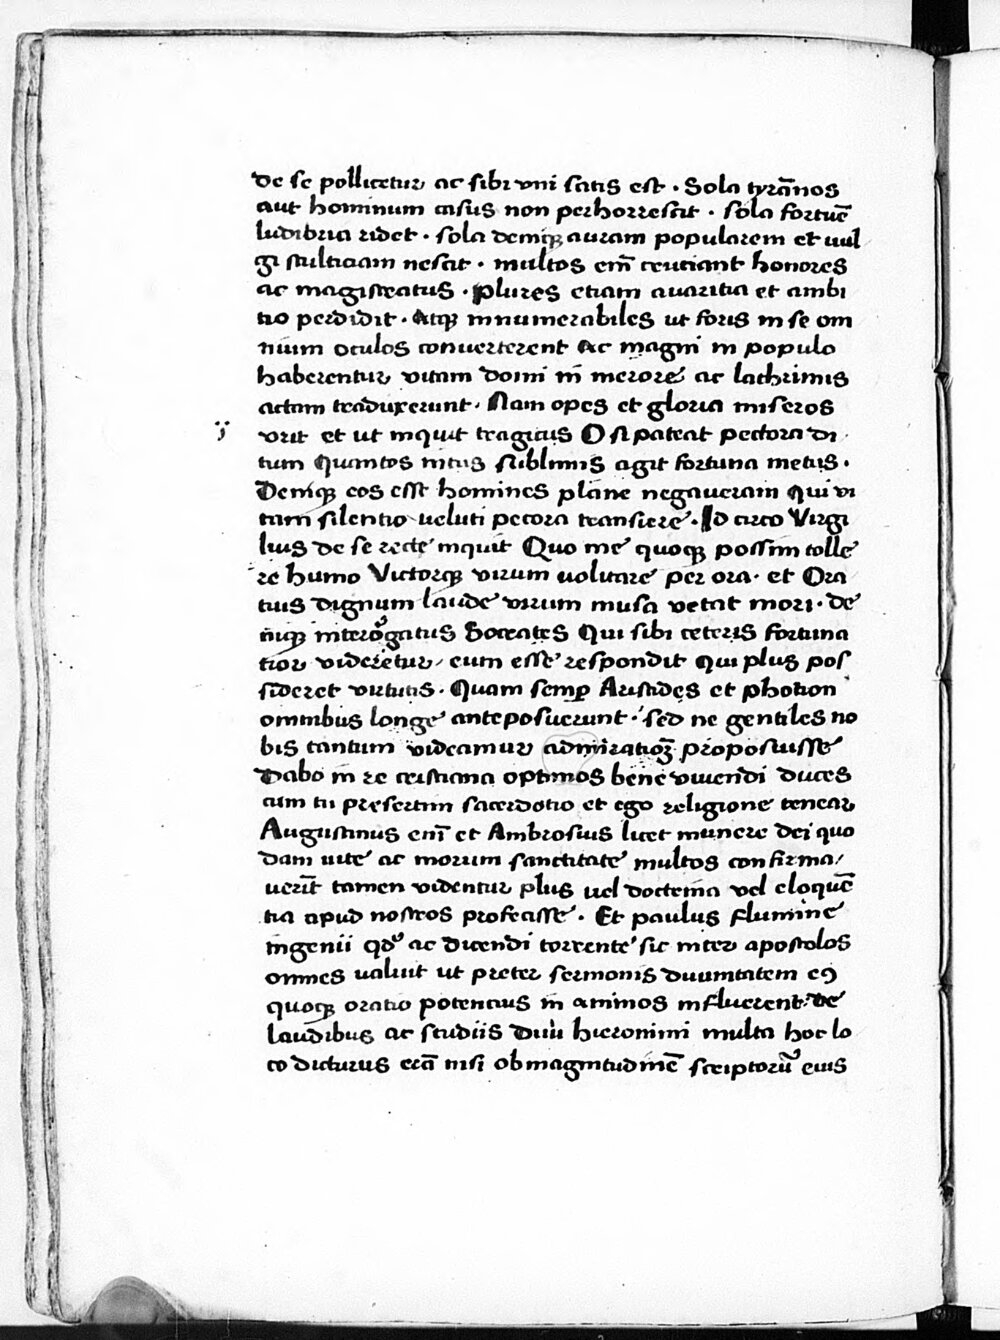 de se pollicetur ac sibi vni satis est · Sola tyrãnos
aut hominum casus non perhorrescit · sola fortuẽ
ludibria ridet · sola deniqꝫ auram popularem et uul
gi stulticiam nescit · multos em̃ cruciant honores
ac magistratus · Plures etiam auaritia et ambi
tio perdidit · Atqꝫ innumerabiles ut foris in se om
nium oculos conuerterent Ac magni in populo
haberentur vitam domi in merore ac lachrimis
actam traduxerunt · Nam opes et gloria miseros
vrit et ut inquit tragicus O si pateat pectora di
tum Quantos intus sublimis agit fortuna metus ·
Deniqꝫ eos esse homines plane negaueram Qui vi
tam silentio ueluti pecora transiere · Id circo Virgi
lius de se recte inquit Quo me quoqꝫ possim tolle
re humo Victorqꝫ virum uolitare per ora · et Ora
tius dignum laude virum musa vetat mori · de
niqꝫ interrogatus Socrates Qui sibi ceteris fortuna
tior videretur / eum esse respondit qui plus pos
sideret virtutis · Quam semp̃ Aristides et photion
omnibus longe anteposuerunt · sed ne gentiles no
bis tantum videamur admirationꝫ proposuisse
Dabo in re cristiana optimos bene viuendi duces
cum tu presertim sacerdotio et ego religione tenear
Augustinus em̃ et Ambrosius licet munere dei quo
dam uite ac morum sanctitate multos confirma/
uerĩt tamen videntur plus uel doctrina vel eloquẽ
tia apud nostros profecisse · Et paulus flumine
ingenii qdͦ ac dicendi torrente sic inter apostolos
omnes ualuit ut preter sermonis diuinitatem eꝯ
quoqꝫ oratio potencius in animos influerent · de
laudibus ac studiis Diui hieronimi multa hoc lo
co dicturus erã nisi ob magnitudinẽ scriptorũ eius